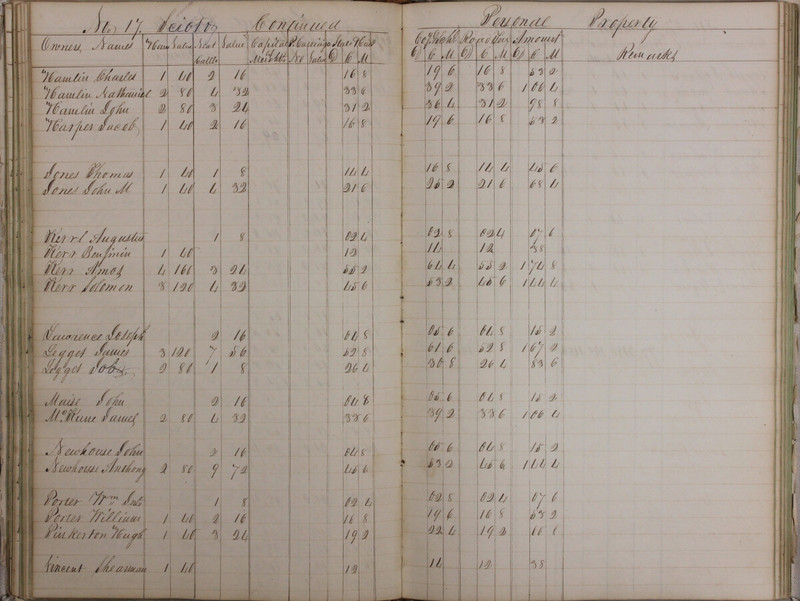 No 17 Scioto Continued Personal Property
Owners Names Value Neat Cattle Value Capital Carriage No Value State Road Tax Amount Remarks
Hamlin Charles 1 40 2 16 16 8 19 6 16 8 53 2
Hamlin Nathaniel 2 80 4 32 33 6 39 2 33 6 106 4
Hamlin John 2 80 3 24 31 2 36 4 31 2 98 8
Harper Jacob 1 40 2 16 16 8 19 6 16 8 53 2
Jones Thomas 1 40 1 8 14 4 16 8 14 4 45 6
Jones John M 1 40 4 32 21 6 25 2 21 6 68 4
Kerr Augustus 1 8 02 4 02 8 02 4 07 6
Kerr Benjimin 1 40 12 14 12 38
Kerr Amos 4 160 3 24 55 2 64 4 55 2 174 8
Kerr Solomon 3 120 4 32 45 6 53 2 45 6 144 4
Lawrence Joseph 2 16 04 8 05 6 04 8 15 2
Legget James 3 120 7 56 52 8 61 6 52 8 167 2
Legget 2 80 1 8 26 4 30 8 26 4 83 6
Maise John 2 16 04 8 05 6 04 8 15 2
McKune James 2 80 4 32 33 6 39 2 33 6 106 4
Newhouse John 2 16 04 8 05 6 04 8 15 2
Newhouse Anthony 2 80 9 72 45 6 53 2 45 6 144 4
Porter Wm 1 8 02 4 02 8 02 4 07 6
Porter William 1 40 2 16 16 8 19 6 16 8 53 2
Pinkerton Hugh 1 40 3 24 19 2 22 4 19 2
Vincent Shearman 1 40 12 14 12 38